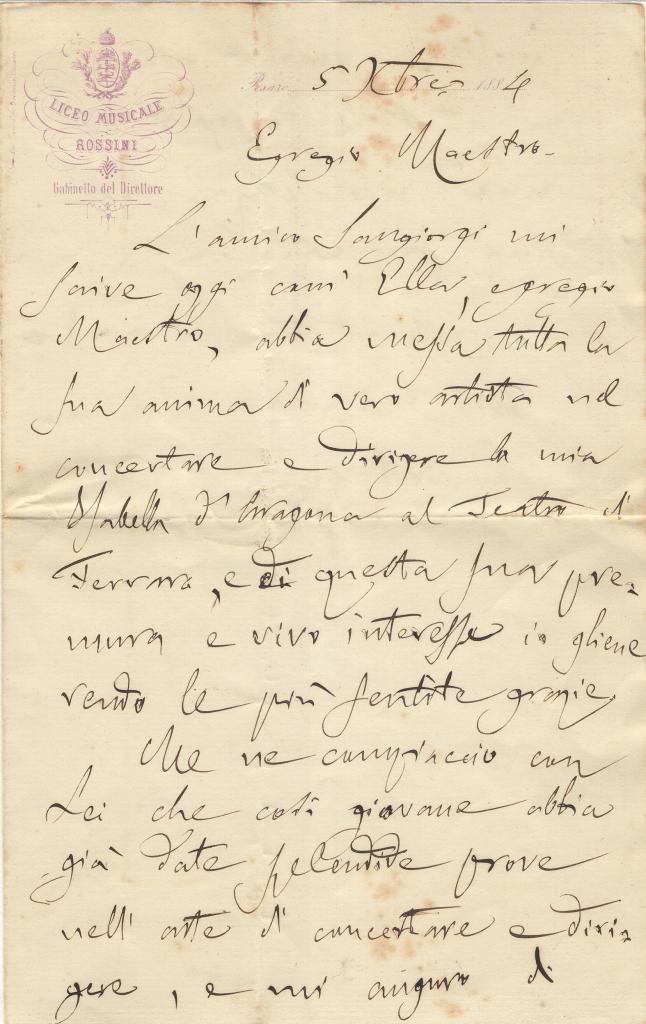 LICEO MUSICALE
ROSSINI
Gabinetto del Direttore
Pesaro 5 Xbre 1884
Egregio Maestro
L'amico Sangiorgi mi
scrive oggi com' Ella, egregio
Maestro, abbia messa tutta la
sua anima di vero artista nel
concertare e dirigere la mia
Isabella d'Aragona al Teatro di
Ferrara, e di questa sua pre=
mura e vivo interesse io gliene
rendo le più sentite grazie.
Me ne compiaccio con
Lei che così giovane abbia
già date splendide prove
nell' arte di concertare e diri=
gere, e mi auguro di